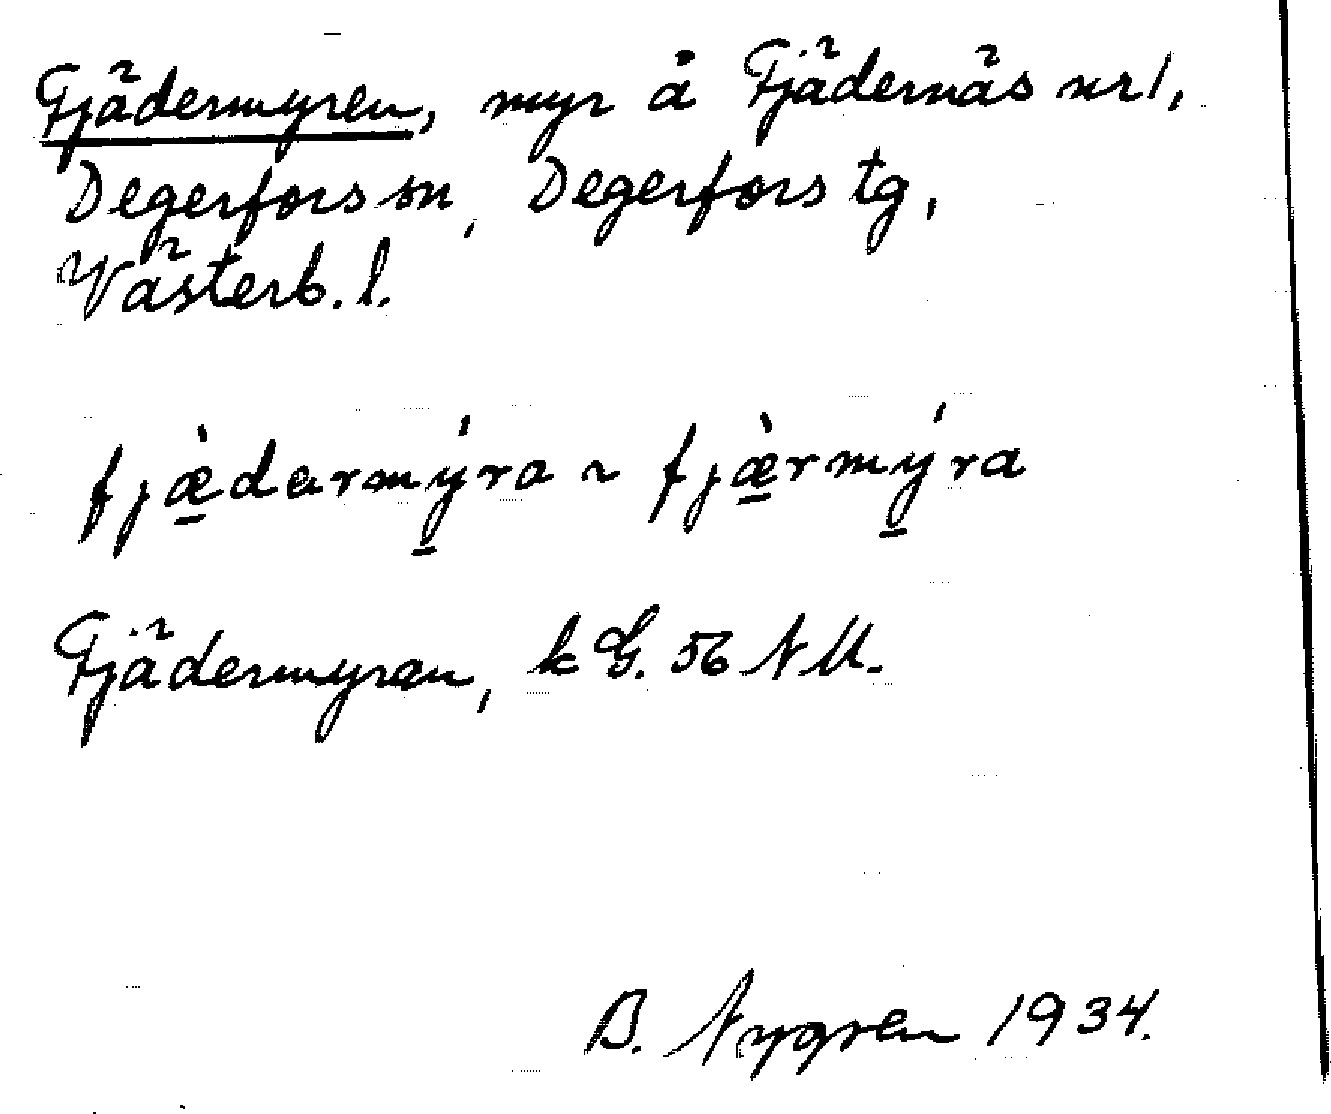 Fjädermyren, myr å Fjädernäs nr 1,
Degerfors sn, Degerfors tg,
Västerb. l.
fjæ̱̀darmý̱ra ~ fjæ̱̀rmý̱ra
Fjädermyren, k G. 56 NU.
B. Nygren 1934.